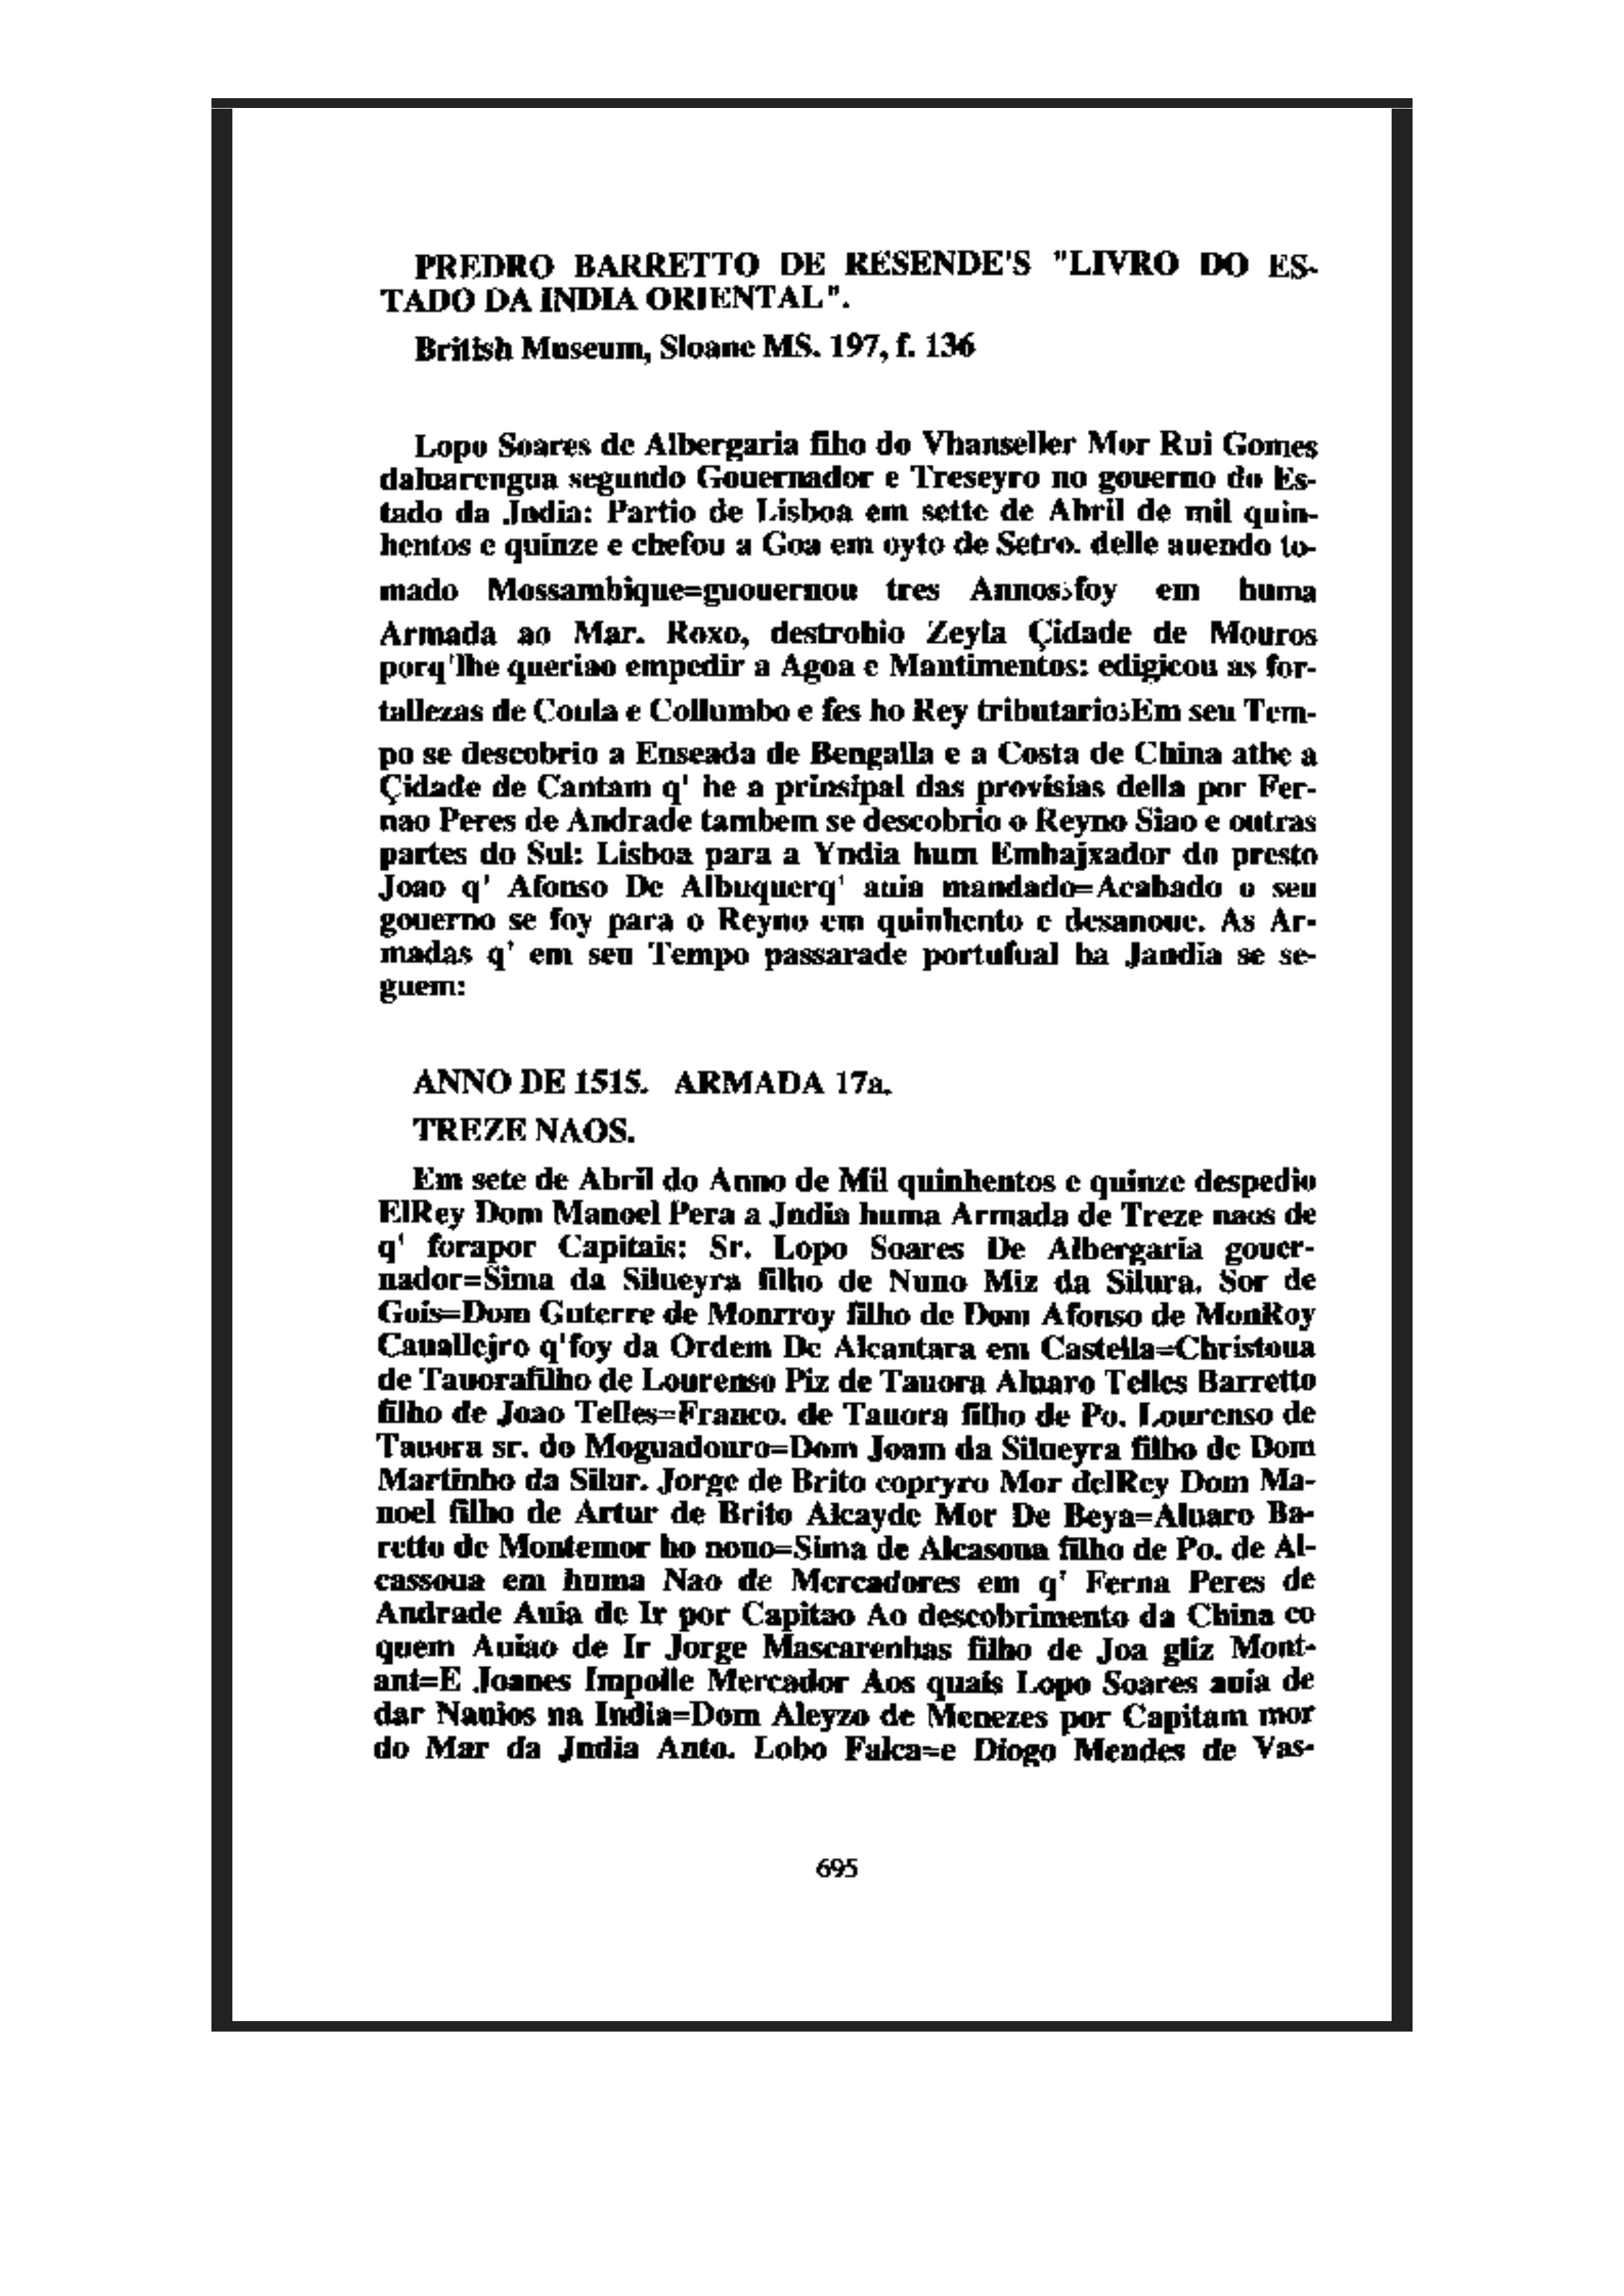 PREDRO BARRETTO DE RESENDE'S "LIVRO DO ES-
TADO DA INDIA ORIENTAL".
British Museum, Sloane MS. 197, f. 136
Lopo Soares de Albergaria fiho do Vhanseller Mor Rui Gomes
daluarengua segundo Gouernador e Treseyro no gouerno do Es-
tado da Jndia: Partio de Lisboa em sette de Abril de mil quin-
hentos e quinze e chefou a Goa em oyto de Setro. delle auendo to-
mado Mossambique=guouernou tres Annos;foy em huma
Armada ao Mar. Roxo, destrohio Zeyla Çidade de Mouros
porq'lhe queriao empedir a Agoa e Mantimentos: edigicou as for-
tallezas de Coula e Collumbo e fes ho Rey tributario;Em seu Tem-
po se descobrio a Enseada de Bengalla e a Costa de China athe a
Çidade de Cantam q' he a prinsipal das provisias della por Fer-
nao Peres de Andrade tambem se descobrio o Reyno Siao e outras
partes do Sul: Lisboa para a Yndia hum Embajxador do presto
Joao q' Afonso De Albuquerq' auia mandado=Acabado o seu
gouerno se foy para o Reyno em quinhento e desanoue. As Ar-
madas q' em seu Tempo passarade portufual ha Jandia se se-
guem:
ANNO DE 1515. ARMADA 17a.
TREZE NAOS.
Em sete de Abril do Anno de Mil quinhentos e quinze despedio
ElRey Dom Manoel Pera a Jndia huma Armada de Treze naos de
q' forapor Capitais: Sr. Lopo Soares De Albergaria gouer-
nador=Sima da Silueyra filho de Nuno Miz da Silura. Sor de
Gois=Dom Guterre de Monrroy filho de Dom Afonso de MonRoy
Cauallejro q'foy da Ordem De Alcantara em Castella=Christoua
de Tauorafilho de Lourenso Piz de Tauora Aluaro Telles Barretto
filho de Joao Telles=Franco. de Tauora filho de Po. Lourenso de
Tauora sr. do Moguadouro=Dom Joam da Silueyra filho de Dom
Martinho da Silur. Jorge de Brito copryro Mor delRey Dom Ma-
noel filho de Artur de Brito Alcayde Mor De Beya=Aluaro Ba-
retto de Montemor ho nouo=Sima de Alcasoua filho de Po. de Al-
cassoua em huma Nao de Mercadores em q' Ferna Peres de
Andrade Auia de Ir por Capitao Ao descobrimento da China co
quem Auiao de Ir Jorge Mascarenhas filho de Joa gliz Mont-
ant=E Joanes Impolle Mercador Aos quais Lopo Soares auia de
dar Nauios na India=Dom Aleyzo de Menezes por Capitam mor
do Mar da Jndia Anto. Lobo Falca=e Diogo Mendes de Vas-
695